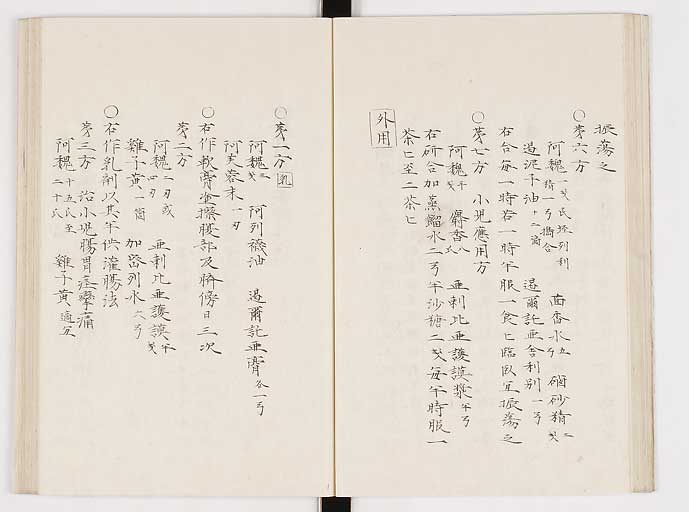 振蕩之
○第六方
阿魏 一戔 茴香水 五弓 硇砂精 二戔
过泥子油 十二滴 過爾託亜舎利別 一弓
右合每一時若一時半服一食匕臨臥宜振蕩之
○第七方 小児應用方
阿魏 半戔 麝香 八氏 亜剌比亜護謨漿 半弓
右研合加蒸餾水二弓半沙糖二戔每半時服一
茶匕至二茶匕
外用
○第一方 乳
阿魏 二戔 阿列襪油 過爾託亜膏 各一弓
阿芙蓉末 一刃
○右作軟膏塗擦腰部及臍傍日三次
第二方
阿魏 二刃或四刃 亜剌比亜護謨 半戔
雞子黄 一箇 加密列水 六弓
○右作乳劑以其半供灌腸法
第三方 治小児腸胃痙攣痛
阿魏 十五氏至二十氏 雞子黄 適宜